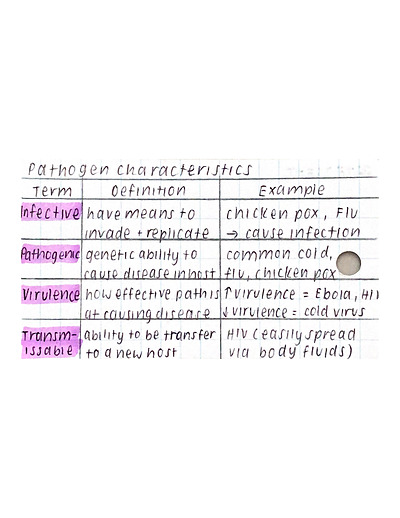 Pathogen characteristics
Term Definition Example
Infective have means to invade + replicate chicken pox, Flu → cause infection
Pathogenic genetic ability to cause disease in host common cold, flu, chicken pox
Virulence how effective path is at causing disease ↑virulence = Ebola, HI ↓virulence = cold virus
Transm-issable ability to be transfer to a new host HIV (easily spread via body fluids)